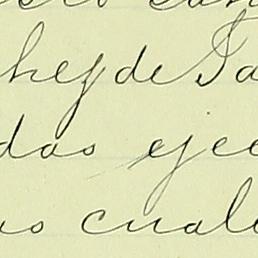 hez de Sa
das ejec
as cuale